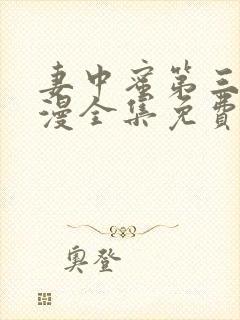 妻中蜜第三
漫全集免费
奥登